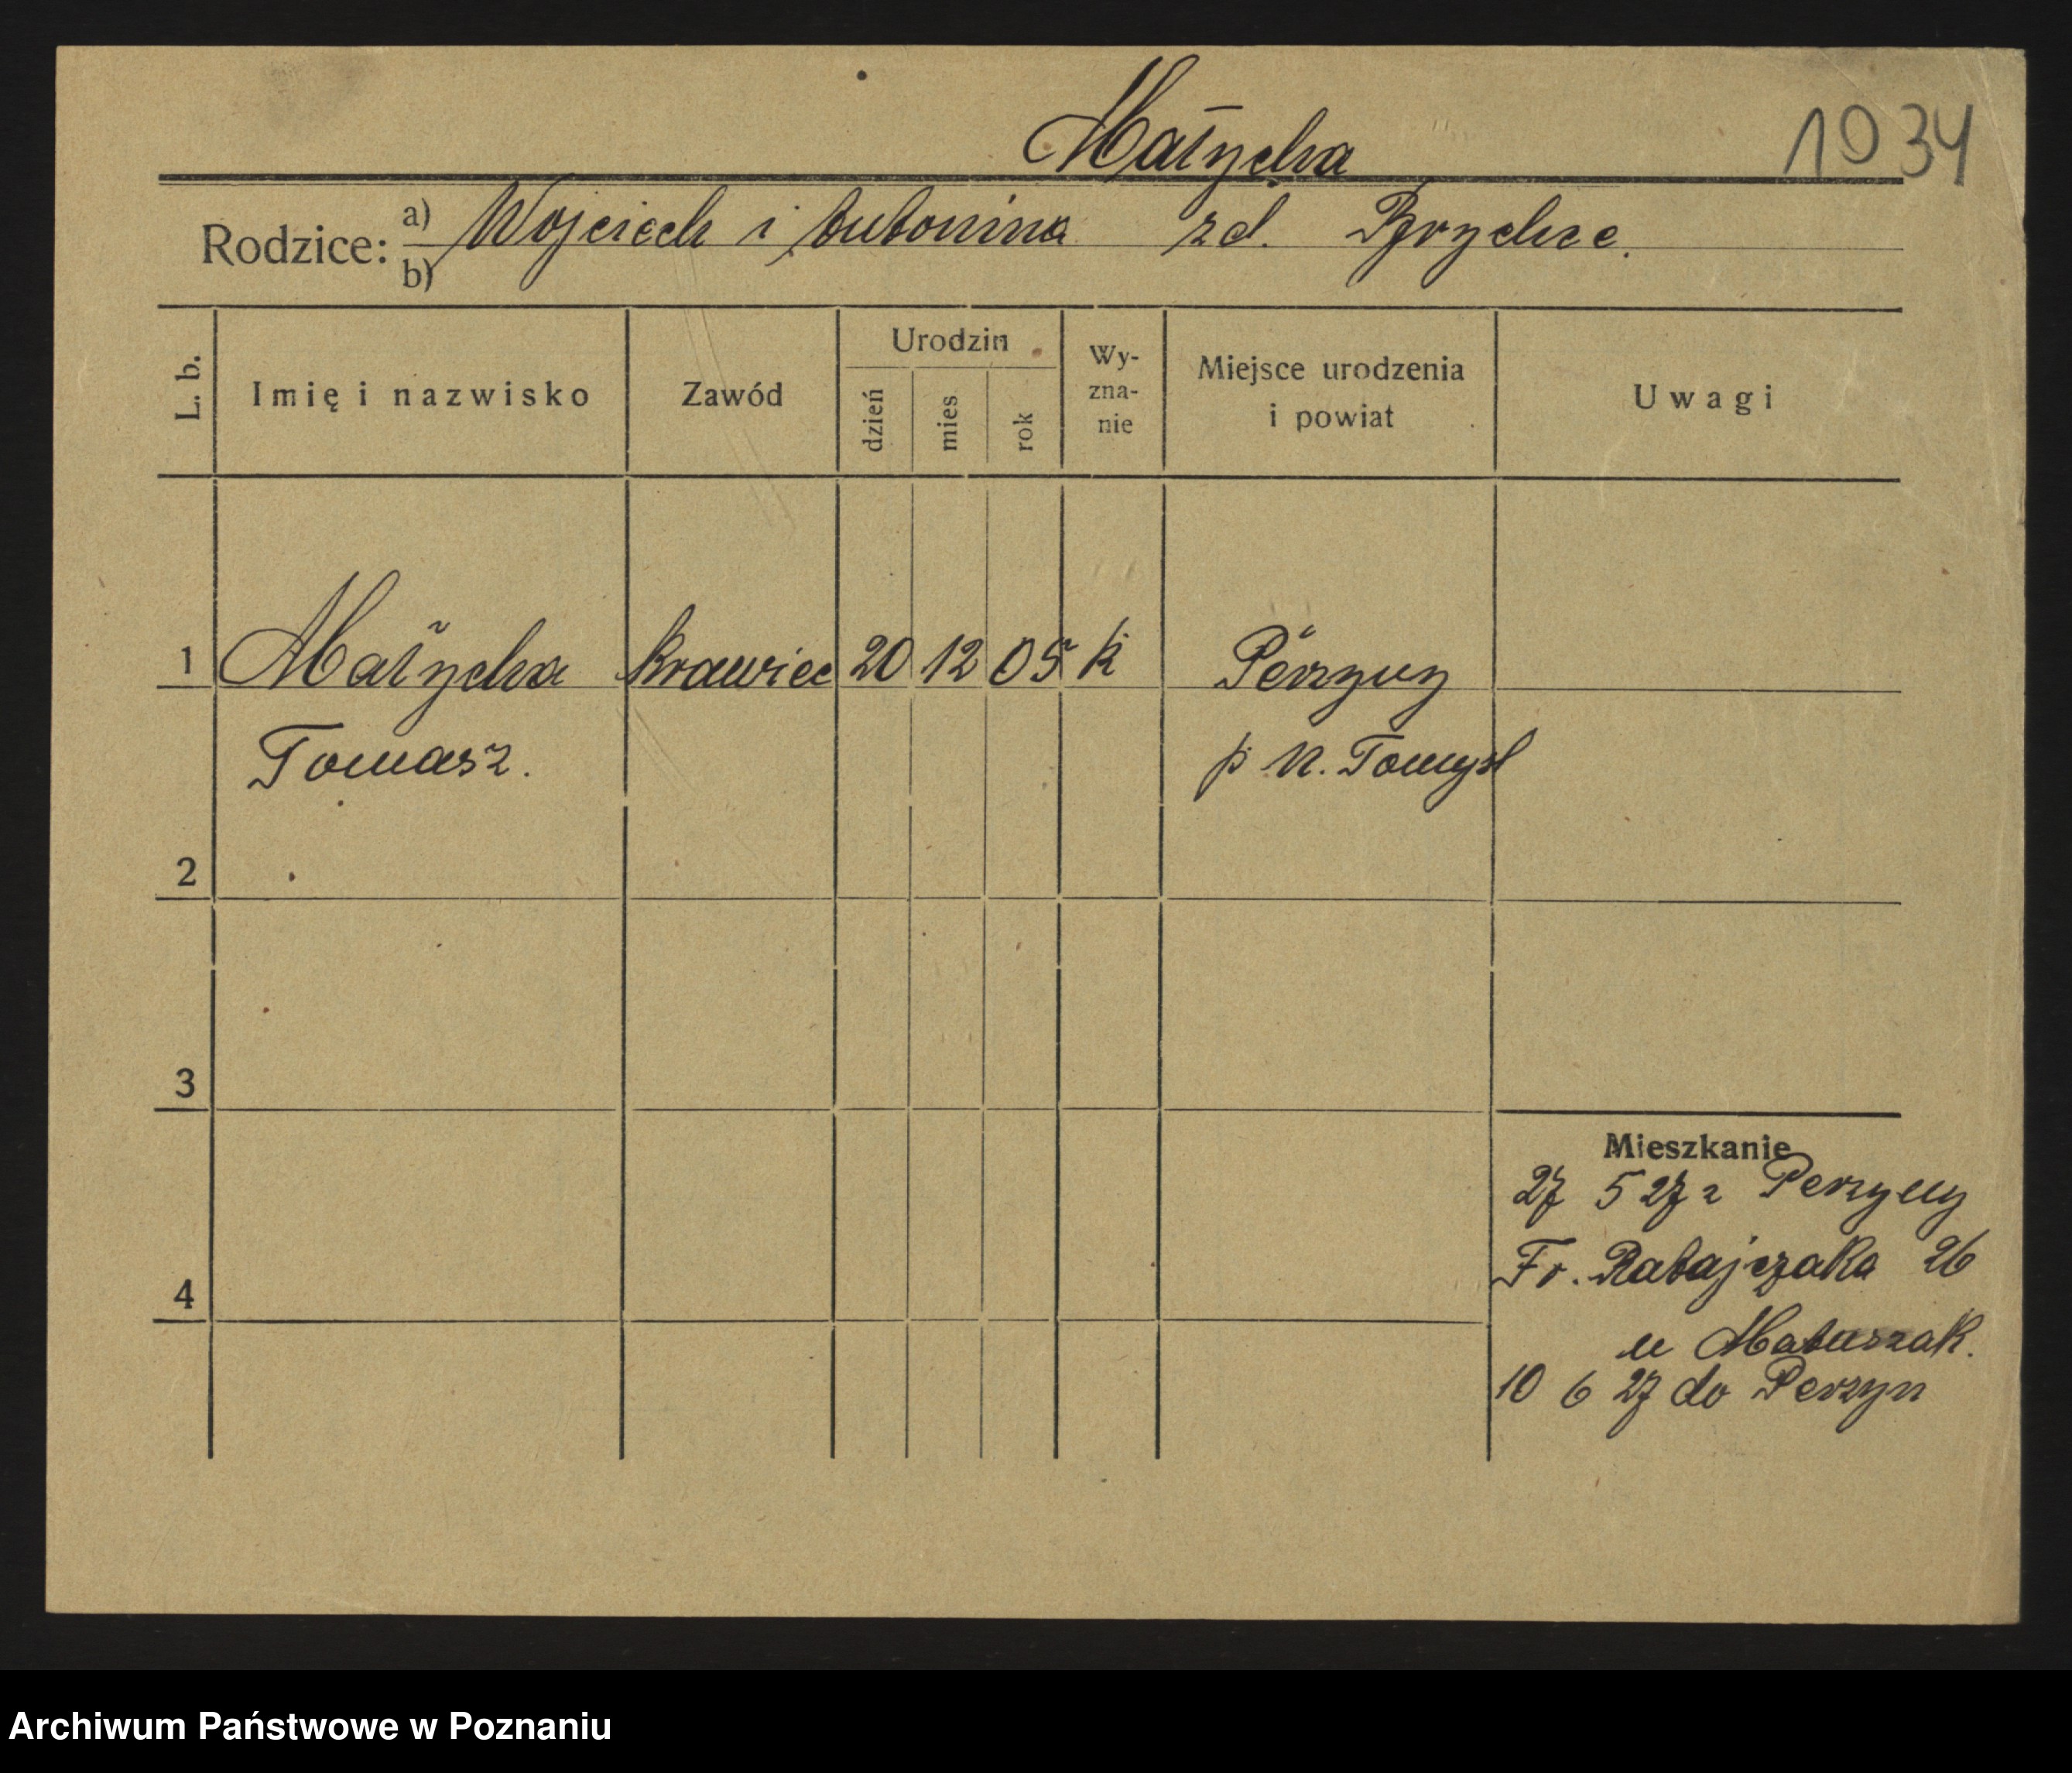 Małycha
1034
Rodzice: a) Wojciech i Antonina zd. Brychce.
b)
L. b.
Imię i nazwisko
Zawód
Urodzin
dzień
mies
rok
Wy-
zna-
nie
Miejsce urodzenia
i powiat
Uwagi
1 Małycha krawiec 20 12 05 k Perzyny
Tomasz. p N. Tomysl
2
3
Mieszkanie
27 5 27 z Perzyny
Fr. Ratajczaka 26
4
u Matuszak.
10 6 27 do Perzyn
Archiwum Państwowe w Poznaniu